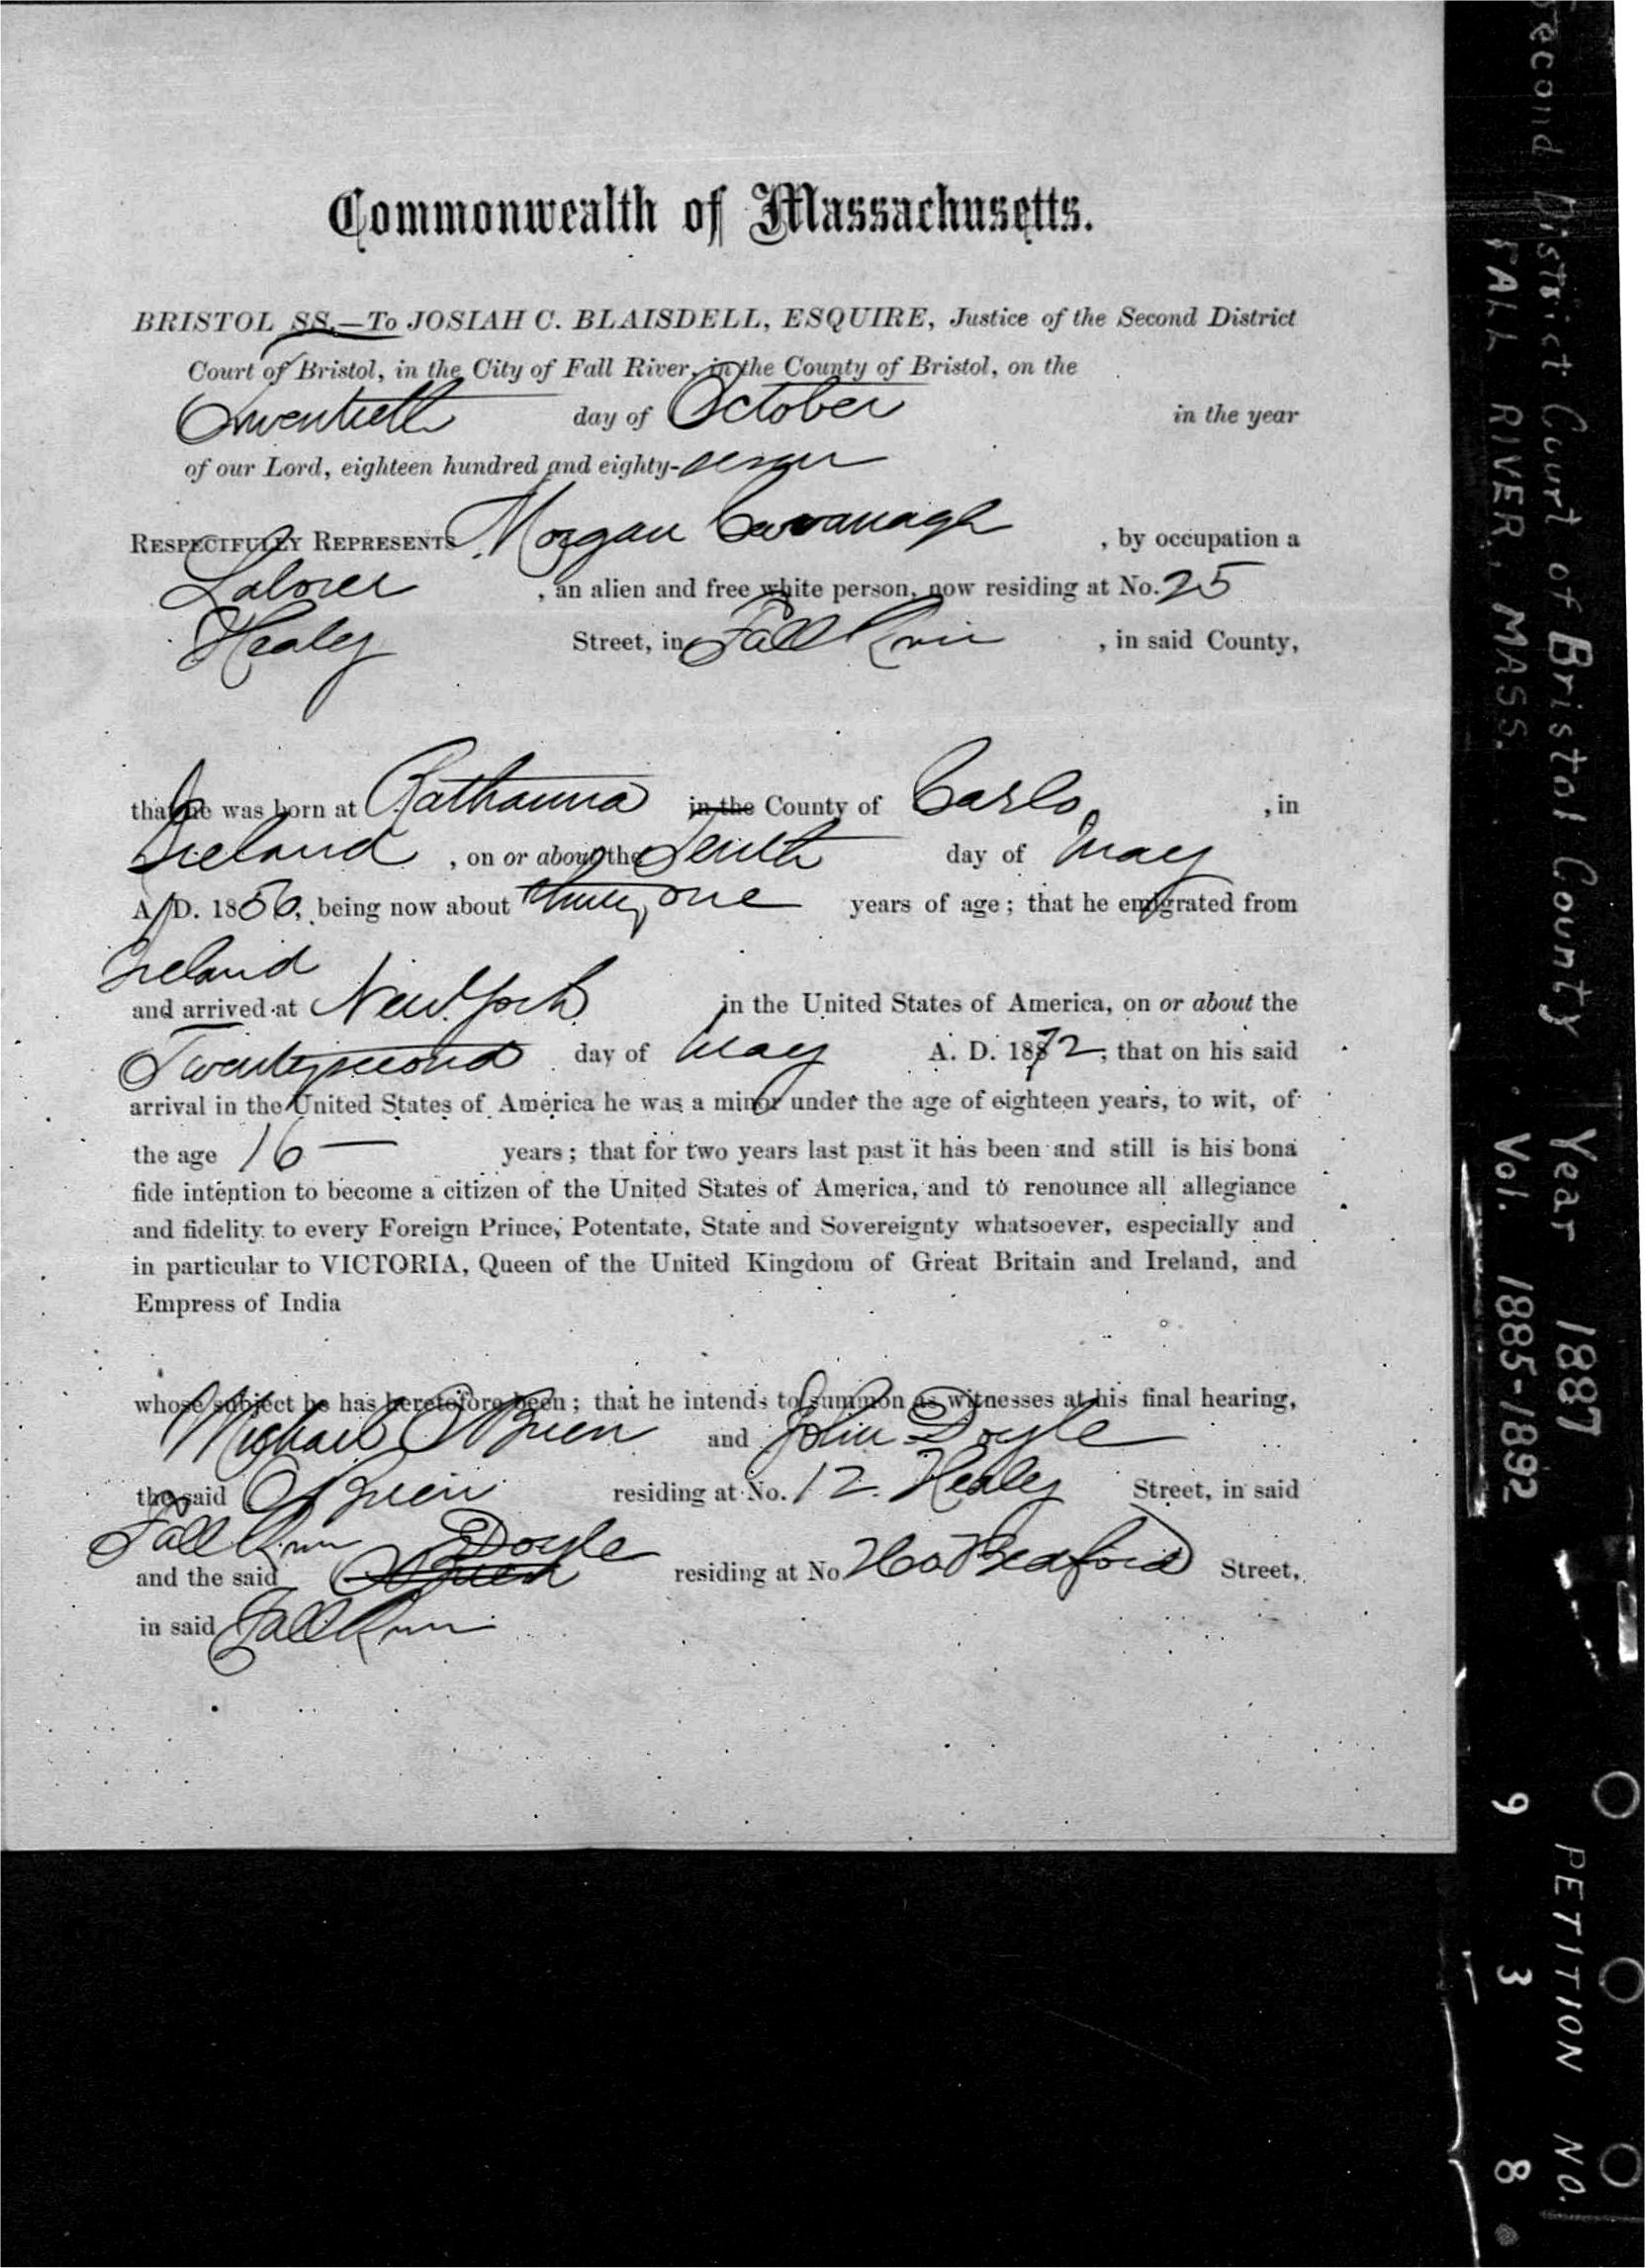 Commonwealth of Massachusetts.
BRISTOL SS.—To JOSIAH C. BLAISDELL, ESQUIRE, Justice of the Second District
Court of Bristol, in the City of Fall River, in the County of Bristol, on the
Twentieth day of October in the year
of our Lord, eighteen hundred and eighty-seven
RESPECTFULLY REPRESENTS Morgan Cavanagh, by occupation a
Laborer, an alien and free white person, now residing at No. 25
Healey Street, in Fall River, in said County,
that he was born at Rathanna in the County of Carlo, in
Ireland, on or about the Tenth day of May
A. D. 1856, being now about thirty one years of age; that he emigrated from
Ireland
and arrived at New York in the United States of America, on or about the
Twenty second day of May A. D. 1872; that on his said
arrival in the United States of America he was a minor under the age of eighteen years, to wit, of
the age 16 — years; that for two years last past it has been and still is his bona
fide intention to become a citizen of the United States of America, and to renounce all allegiance
and fidelity to every Foreign Prince, Potentate, State and Sovereignty whatsoever, especially and
in particular to VICTORIA, Queen of the United Kingdom of Great Britain and Ireland, and
Empress of India
whose subject he has heretofore been; that he intends to summon as witnesses at his final hearing,
Michael O'Brien and John Doyle
the said O'Brien residing at No. 12 Healey Street, in said
Fall River Doyle
and the said O'Brien residing at No Bedford Street,
in said Fall River
Second District Court of Bristol County Year 1887 PETITION NO.
FALL RIVER, MASS. Vol. 1885-1892 9 3 8